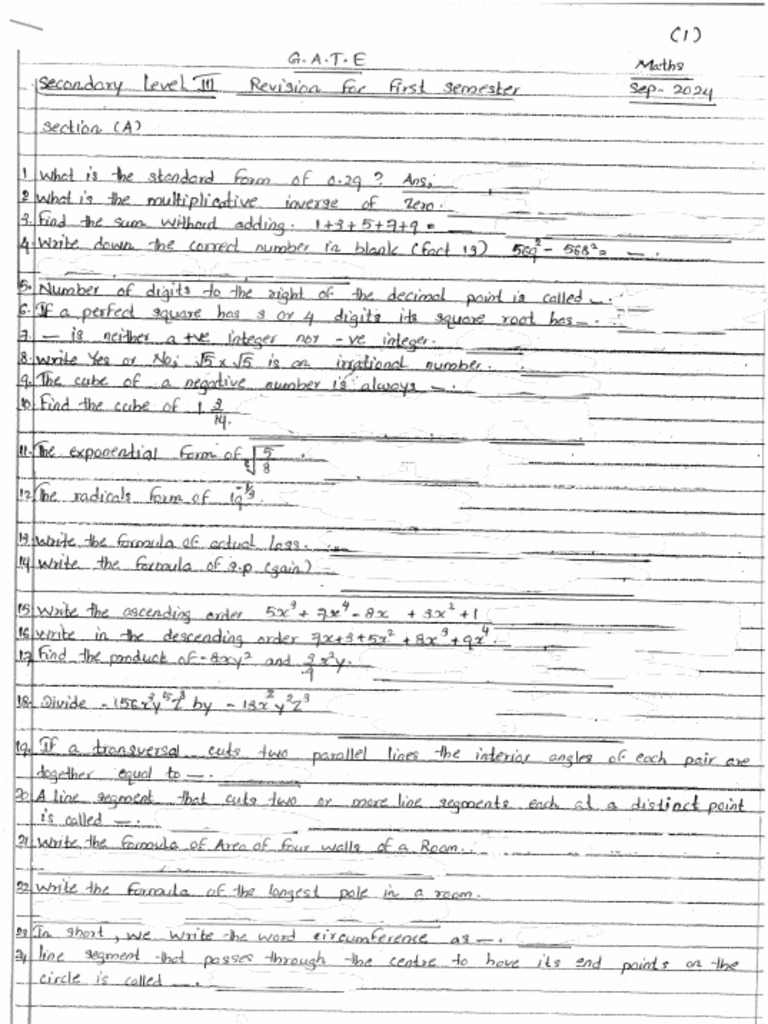 (1)
G.A.T.E
Maths
Secondary Level III Revision for First Semester
Sep- 2024
Section (A)
1 What is the standard form of 0.29? Ans;
2 What is the multiplicative inverse of Zero.
3. Find the sum without adding. 1+3+5+7+9 =
4 Write down the correct number in blank (fact 13) 569² - 568² = —.
5. Number of digits to the right of the decimal point is called —.
6. If a perfect square has 3 or 4 digits its square root has —.
7. — is neither a +ve integer nor -ve integer.
8. Write Yes or No; √5 x √5 is an irrational number.
9. The cube of a negative number is always —.
10. Find the cube of 1 3/14.
11. The exponential form of √5/8.
12 The radicals form of 19^-1/3.
13. Write the formula of actual loss.
14 Write the formula of S.P (gain)
15 Write the ascending order 5x³ + 7x⁴ - 8x + 3x² + 1
16 Write in the descending order 7x+3+5x² + 8x³ + 9x⁴.
17 Find the product of -3xy² and x²y.
18. Divide - 156 by - 13x²y²z³
19. If a transversal cuts two parallel lines the interior angles of each pair are
together equal to —.
20. A line segment that cuts two or more line segments each at a distinct point
is called —.
21 Write the formula of Area of four walls of a Room.
22 Write the formula of the longest pole in a room.
23 In short, we write the word circumference as —.
24 line segment that passes through the centre to have its end points on the
circle is called —.